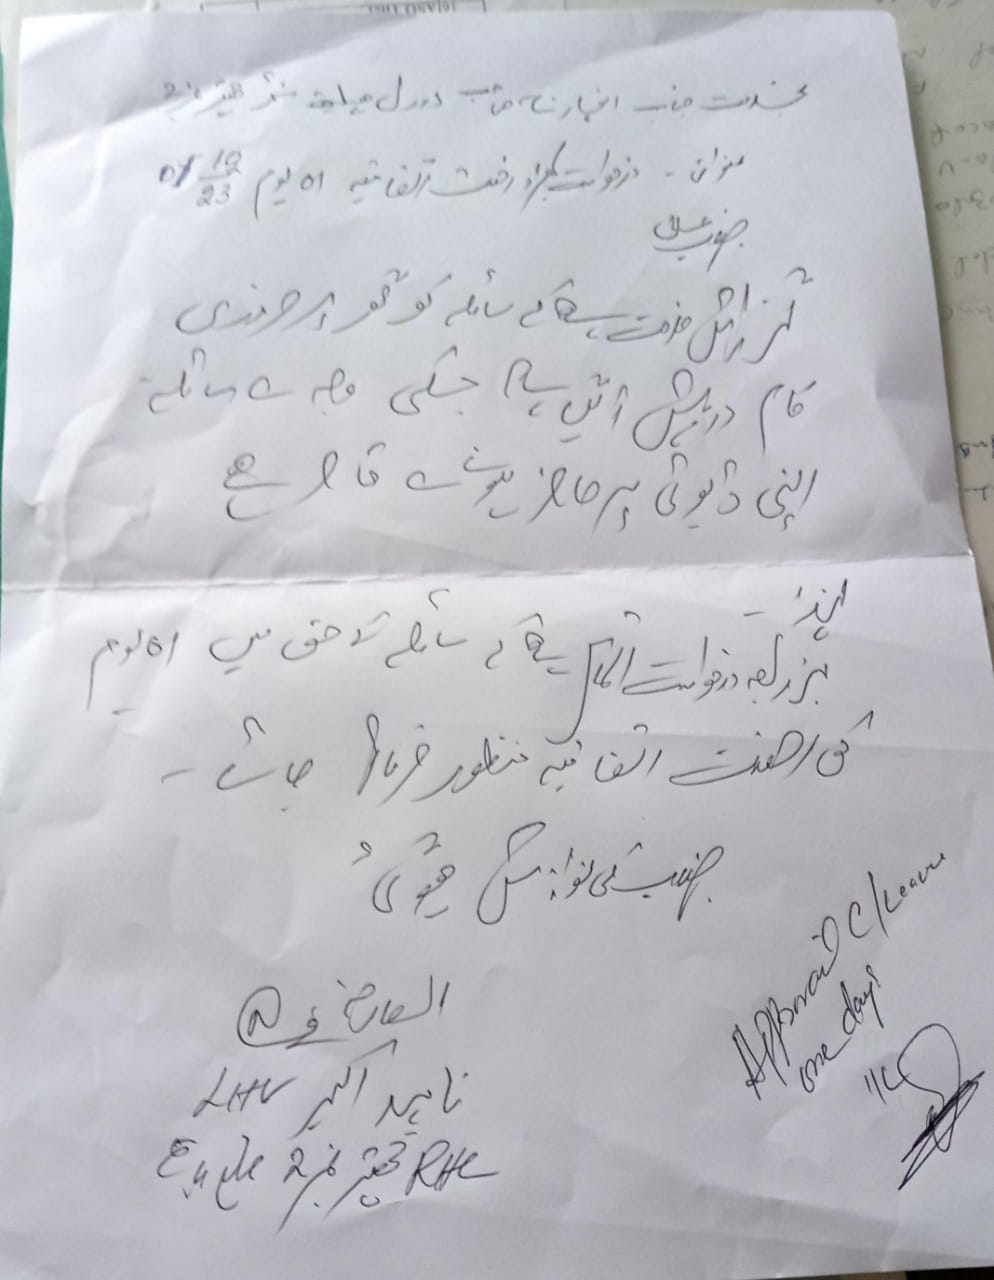 بخدمت جناب انچارج صاحب رورل ہیلتھ سنٹر گھیر نمبر 2
عنوان - درخواست بمراد رخصت اتفاقیہ 01 یوم 12/23
جناب عالی
گزارش خدمت ہے کہ سائلہ کو گھر پر ضروری
کام درپیش آئیں ہے جسکی وجہ سے سائلہ
اپنی ڈیوٹی پر حاضر ہونے سے قاصر ہے
لہذا -
بذریعہ درخواست التماس ہے کہ سائلہ کے حق میں 01 یوم
کی رخصت اتفاقیہ منظور فرمائی جائے -
جناب کی نوازش ہوگی
العارضہ
ناہید اکبر LHV
RHC نمبر 2 ضلع
Approved C/Leave
one day